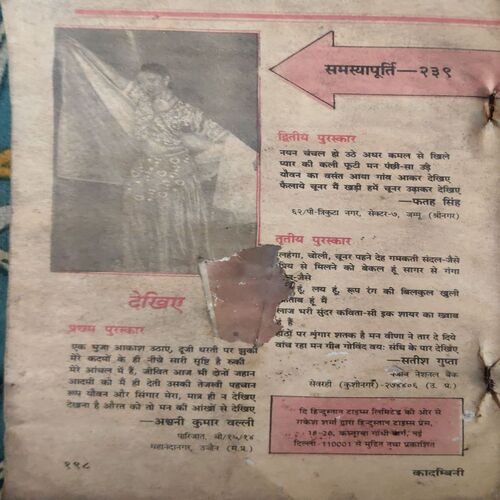 समस्यापूर्ति—२३९
द्वितीय पुरस्कार
नयन चंचल हो उठे अधर कमल से खिले
प्यार की कली फूटी मन पंछी-सा उड़े
यौवन का वसंत आया गांव आकर देखिए
फैलाये चूनर मैं खड़ी हमें चूनर उढ़ाकर देखिए
—फतह सिंह
६२/पी-त्रिकुटा नगर, सेक्टर-७, जम्मू (श्रीनगर)
तृतीय पुरस्कार
लहंगा, चोली, चूनर पहने देह गमकती संदल-जैसे
प्रिय से मिलने को बेकल हूं सागर से गंगा
जैसे
हूं, लय हूं, रूप रंग की बिलकुल खुली
किताब हूं मैं
लाज भरी सुंदर कविता-सी इक शायर का ख्वाब
हूं मैं
होंठों पर शृंगार शतक है मन वीणा ने तार दे दिये
बांच रहा मन गीत गोविंद वयः संधि के पार देखिए
—सतीश गुप्ता
पंजाब नेशनल बैंक
सेवरही (कुशीनगर)-२७४४०६ (उ. प्र.)
देखिए
प्रथम पुरस्कार
एक भुजा आकाश उठाए, दूजी धरती पर झुकी
मेरे कदमों के ही नीचे सारी सृष्टि है रुकी
मेरे आंचल में हैं, जीवित आज भी दोनों जहान
आदमी को मैं ही देती उसकी तेजस्वी पहचान
रूप यौवन और सिंगार मेरा, मात्र ही न देखिए
देखना है औरत को तो मन की आंखों से देखिए
—अश्वनी कुमार वल्ली
पारिजात, बी/१५/१४
महानंदानगर, उज्जैन (म.प्र.)
दि हिन्दुस्तान टाइम्स लिमिटेड की ओर से
राकेश शर्मा द्वारा हिन्दुस्तान टाइम्स प्रेस,
18-20, कस्तूरबा गांधी मार्ग, नई
दिल्ली-110001 से मुद्रित तथा प्रकाशित
१९८
कादम्बिनी